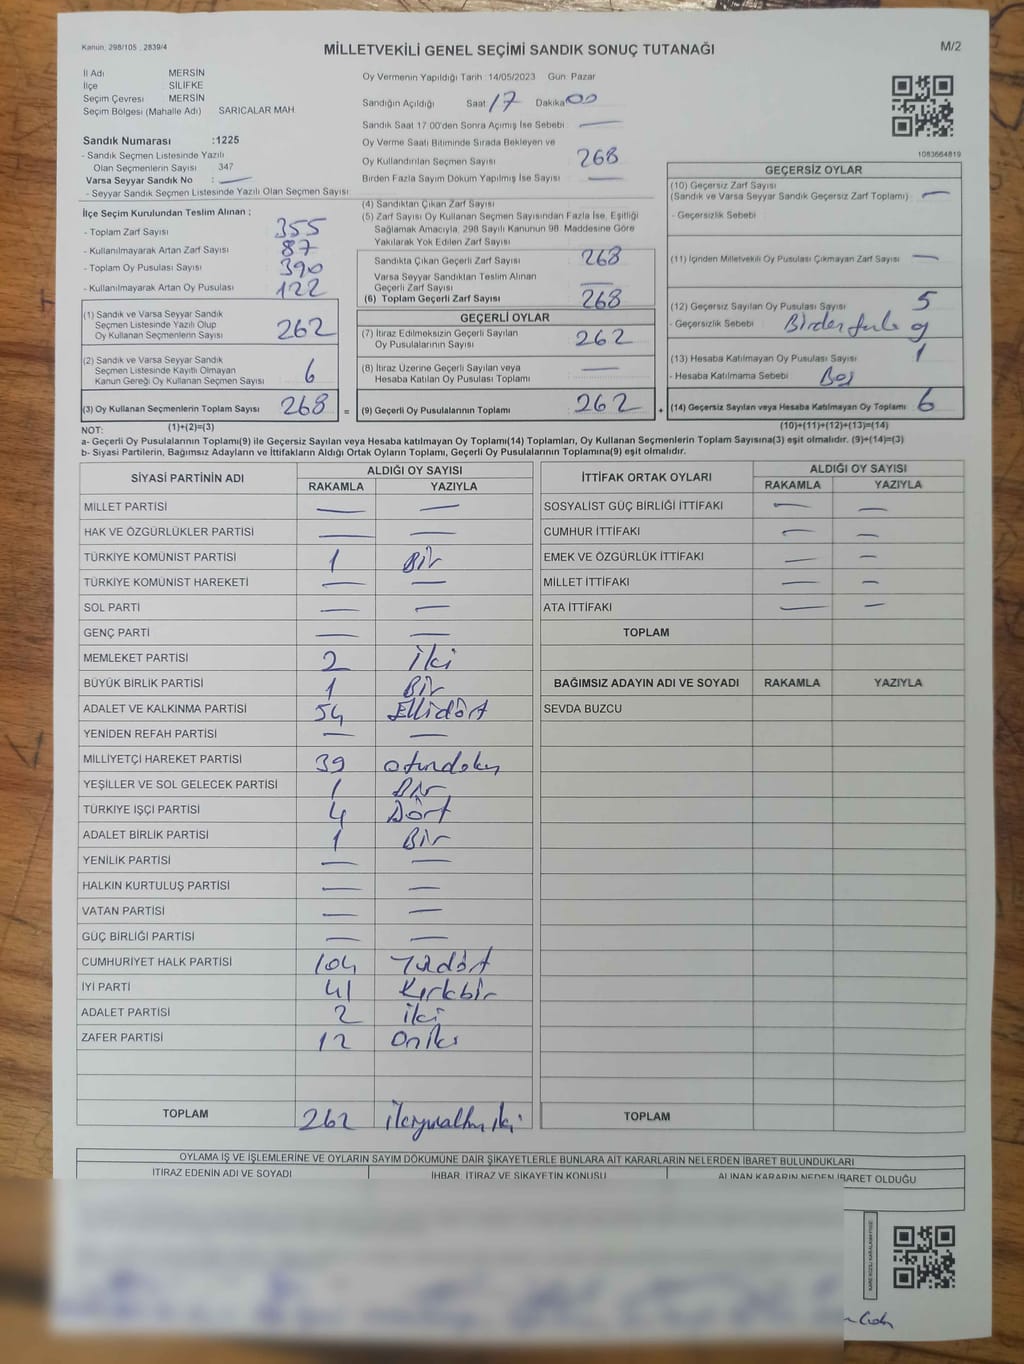 Kanun: 298/105 , 2839/4
MİLLETVEKİLİ GENEL SEÇİMİ SANDIK SONUÇ TUTANAĞI
M/2
İl Adı MERSİN
İlçe SİLİFKE
Seçim Çevresi MERSİN
Seçim Bölgesi (Mahalle Adı) SARICALAR MAH
Sandık Numarası :1225
- Sandık Seçmen Listesinde Yazılı
Olan Seçmenlerin Sayısı 347
Varsa Seyyar Sandık No : —
- Seyyar Sandık Seçmen Listesinde Yazılı Olan Seçmen Sayısı:
Oy Vermenin Yapıldığı Tarih :14/05/2023 Gün: Pazar
Sandığın Açıldığı Saat 17 Dakika 00
Sandık Saat 17:00'den Sonra Açımış İse Sebebi : —
Oy Verme Saati Bitiminde Sırada Bekleyen ve
Oy Kullandırılan Seçmen Sayısı 268
Birden Fazla Sayım Döküm Yapılmış İse Sayısı —
1083664819
İlçe Seçim Kurulundan Teslim Alınan ;
- Toplam Zarf Sayısı 355
- Kullanılmayarak Artan Zarf Sayısı 87
- Toplam Oy Pusulası Sayısı 390
- Kullanılmayarak Artan Oy Pusulası 122
(1) Sandık ve Varsa Seyyar Sandık
Seçmen Listesinde Yazılı Olup
Oy Kullanan Seçmenlerin Sayısı 262
(2) Sandık ve Varsa Seyyar Sandık
Seçmen Listesinde Kayıtlı Olmayan
Kanun Gereği Oy Kullanan Seçmen Sayısı 6
(3) Oy Kullanan Seçmenlerin Toplam Sayısı 268 =
(4) Sandıktan Çıkan Zarf Sayısı
(5) Zarf Sayısı Oy Kullanan Seçmen Sayısından Fazla İse, Eşitliği
Sağlamak Amacıyla, 298 Sayılı Kanunun 98. Maddesine Göre
Yakılarak Yok Edilen Zarf Sayısı
Sandıkta Çıkan Geçerli Zarf Sayısı 268
Varsa Seyyar Sandıktan Teslim Alınan
Geçerli Zarf Sayısı —
(6) Toplam Geçerli Zarf Sayısı 268
GEÇERLİ OYLAR
(7) İtiraz Edilmeksizin Geçerli Sayılan
Oy Pusulalarının Sayısı 262
(8) İtiraz Üzerine Geçerli Sayılan veya
Hesaba Katılan Oy Pusulası Toplamı —
(9) Geçerli Oy Pusulalarının Toplamı 262 +
GEÇERSİZ OYLAR
(10) Geçersiz Zarf Sayısı
(Sandık ve Varsa Seyyar Sandık Geçersiz Zarf Toplamı) —
- Geçersizlik Sebebi
(11) İçinden Milletvekili Oy Pusulası Çıkmayan Zarf Sayısı —
(12) Geçersiz Sayılan Oy Pusulası Sayısı 5
- Geçersizlik Sebebi Birden fazla oy
(13) Hesaba Katılmayan Oy Pusulası Sayısı 1
- Hesaba Katılmama Sebebi Boş
(14) Geçersiz Sayılan veya Hesaba Katılmayan Oy Toplamı 6
NOT: (1)+(2)=(3) (10)+(11)+(12)+(13)=(14)
a- Geçerli Oy Pusulalarının Toplamı(9) ile Geçersiz Sayılan veya Hesaba katılmayan Oy Toplamı(14) Toplamları, Oy Kullanan Seçmenlerin Toplam Sayısına(3) eşit olmalıdır. (9)+(14)=(3)
b- Siyasi Partilerin, Bağımsız Adayların ve İttifakların Aldığı Ortak Oyların Toplamı, Geçerli Oy Pusulalarının Toplamına(9) eşit olmalıdır.
SİYASİ PARTİNİN ADI ALDIĞI OY SAYISI
RAKAMLA YAZIYLA
MİLLET PARTİSİ — —
HAK VE ÖZGÜRLÜKLER PARTİSİ — —
TÜRKİYE KOMÜNİST PARTİSİ 1 Bir
TÜRKİYE KOMÜNİST HAREKETİ — —
SOL PARTİ — —
GENÇ PARTİ — —
MEMLEKET PARTİSİ 2 İki
BÜYÜK BİRLİK PARTİSİ 1 Bir
ADALET VE KALKINMA PARTİSİ 54 Ellidört
YENİDEN REFAH PARTİSİ — —
MİLLİYETÇİ HAREKET PARTİSİ 39 otuzdokuz
YEŞİLLER VE SOL GELECEK PARTİSİ 1 Bir
TÜRKİYE İŞÇİ PARTİSİ 4 Dört
ADALET BİRLİK PARTİSİ 1 Bir
YENİLİK PARTİSİ — —
HALKIN KURTULUŞ PARTİSİ — —
VATAN PARTİSİ — —
GÜÇ BİRLİĞİ PARTİSİ — —
CUMHURİYET HALK PARTİSİ 104 Yüzdört
İYİ PARTİ 41 Kırkbir
ADALET PARTİSİ 2 iki
ZAFER PARTİSİ 12 Oniki
TOPLAM 262 ikiyüzaltmışiki
İTTİFAK ORTAK OYLARI ALDIĞI OY SAYISI
RAKAMLA YAZIYLA
SOSYALİST GÜÇ BİRLİĞİ İTTİFAKI — —
CUMHUR İTTİFAKI — —
EMEK VE ÖZGÜRLÜK İTTİFAKI — —
MİLLET İTTİFAKI — —
ATA İTTİFAKI — —
TOPLAM
BAĞIMSIZ ADAYIN ADI VE SOYADI RAKAMLA YAZIYLA
SEVDA BUZCU
TOPLAM
OYLAMA İŞ VE İŞLEMLERİNE VE OYLARIN SAYIM DÖKÜMÜNE DAİR ŞİKAYETLERLE BUNLARA AİT KARARLARIN NELERDEN İBARET BULUNDUKLARI
İTİRAZ EDENİN ADI VE SOYADI İHBAR, İTİRAZ VE ŞİKAYETİN KONUSU ALINAN KARARIN NEDEN İBARET OLDUĞU